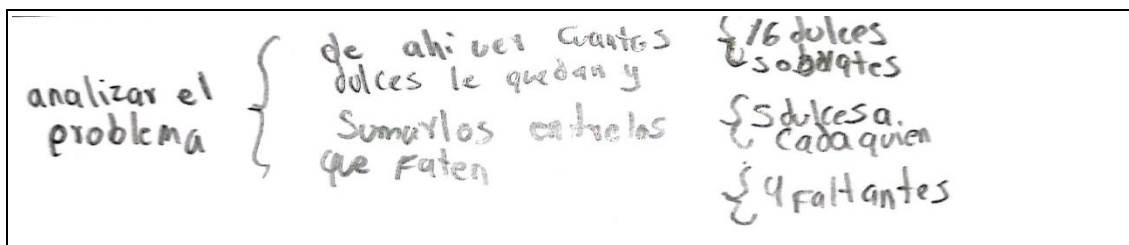 analizar el
problema
de ahi ver cuantos
dulces le quedan y
Sumarlos entre los
que Faten
16 dulces
sobrates
5 dulces a.
cada quien
4 Faltantes